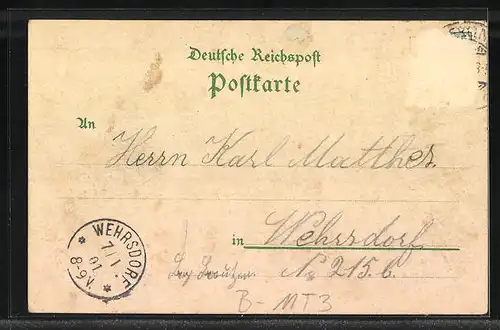 Deutsche Reichspost
Postkarte
An
Herrn Karl Matthes
in Wehrsdorf
No 215.b.
WEHRSDORF
7/1
01.
8-9N.
B-MT3